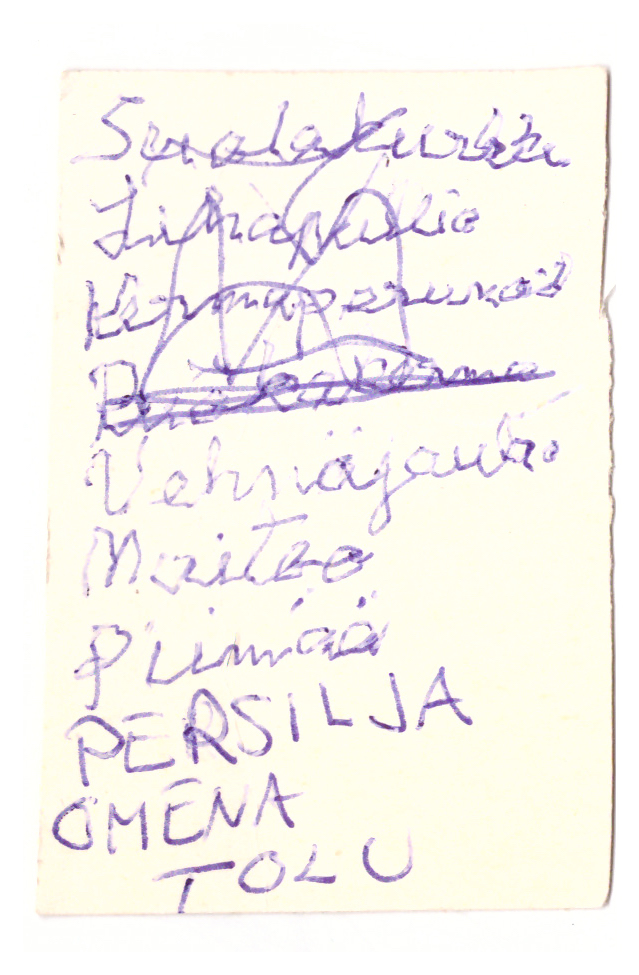 Suolakurkku
Lihapullia
Kermaperunat
Ruokakerma
Vehnäjauho
Maitoo
Piimää
PERSILJA
OMENA
TOLU